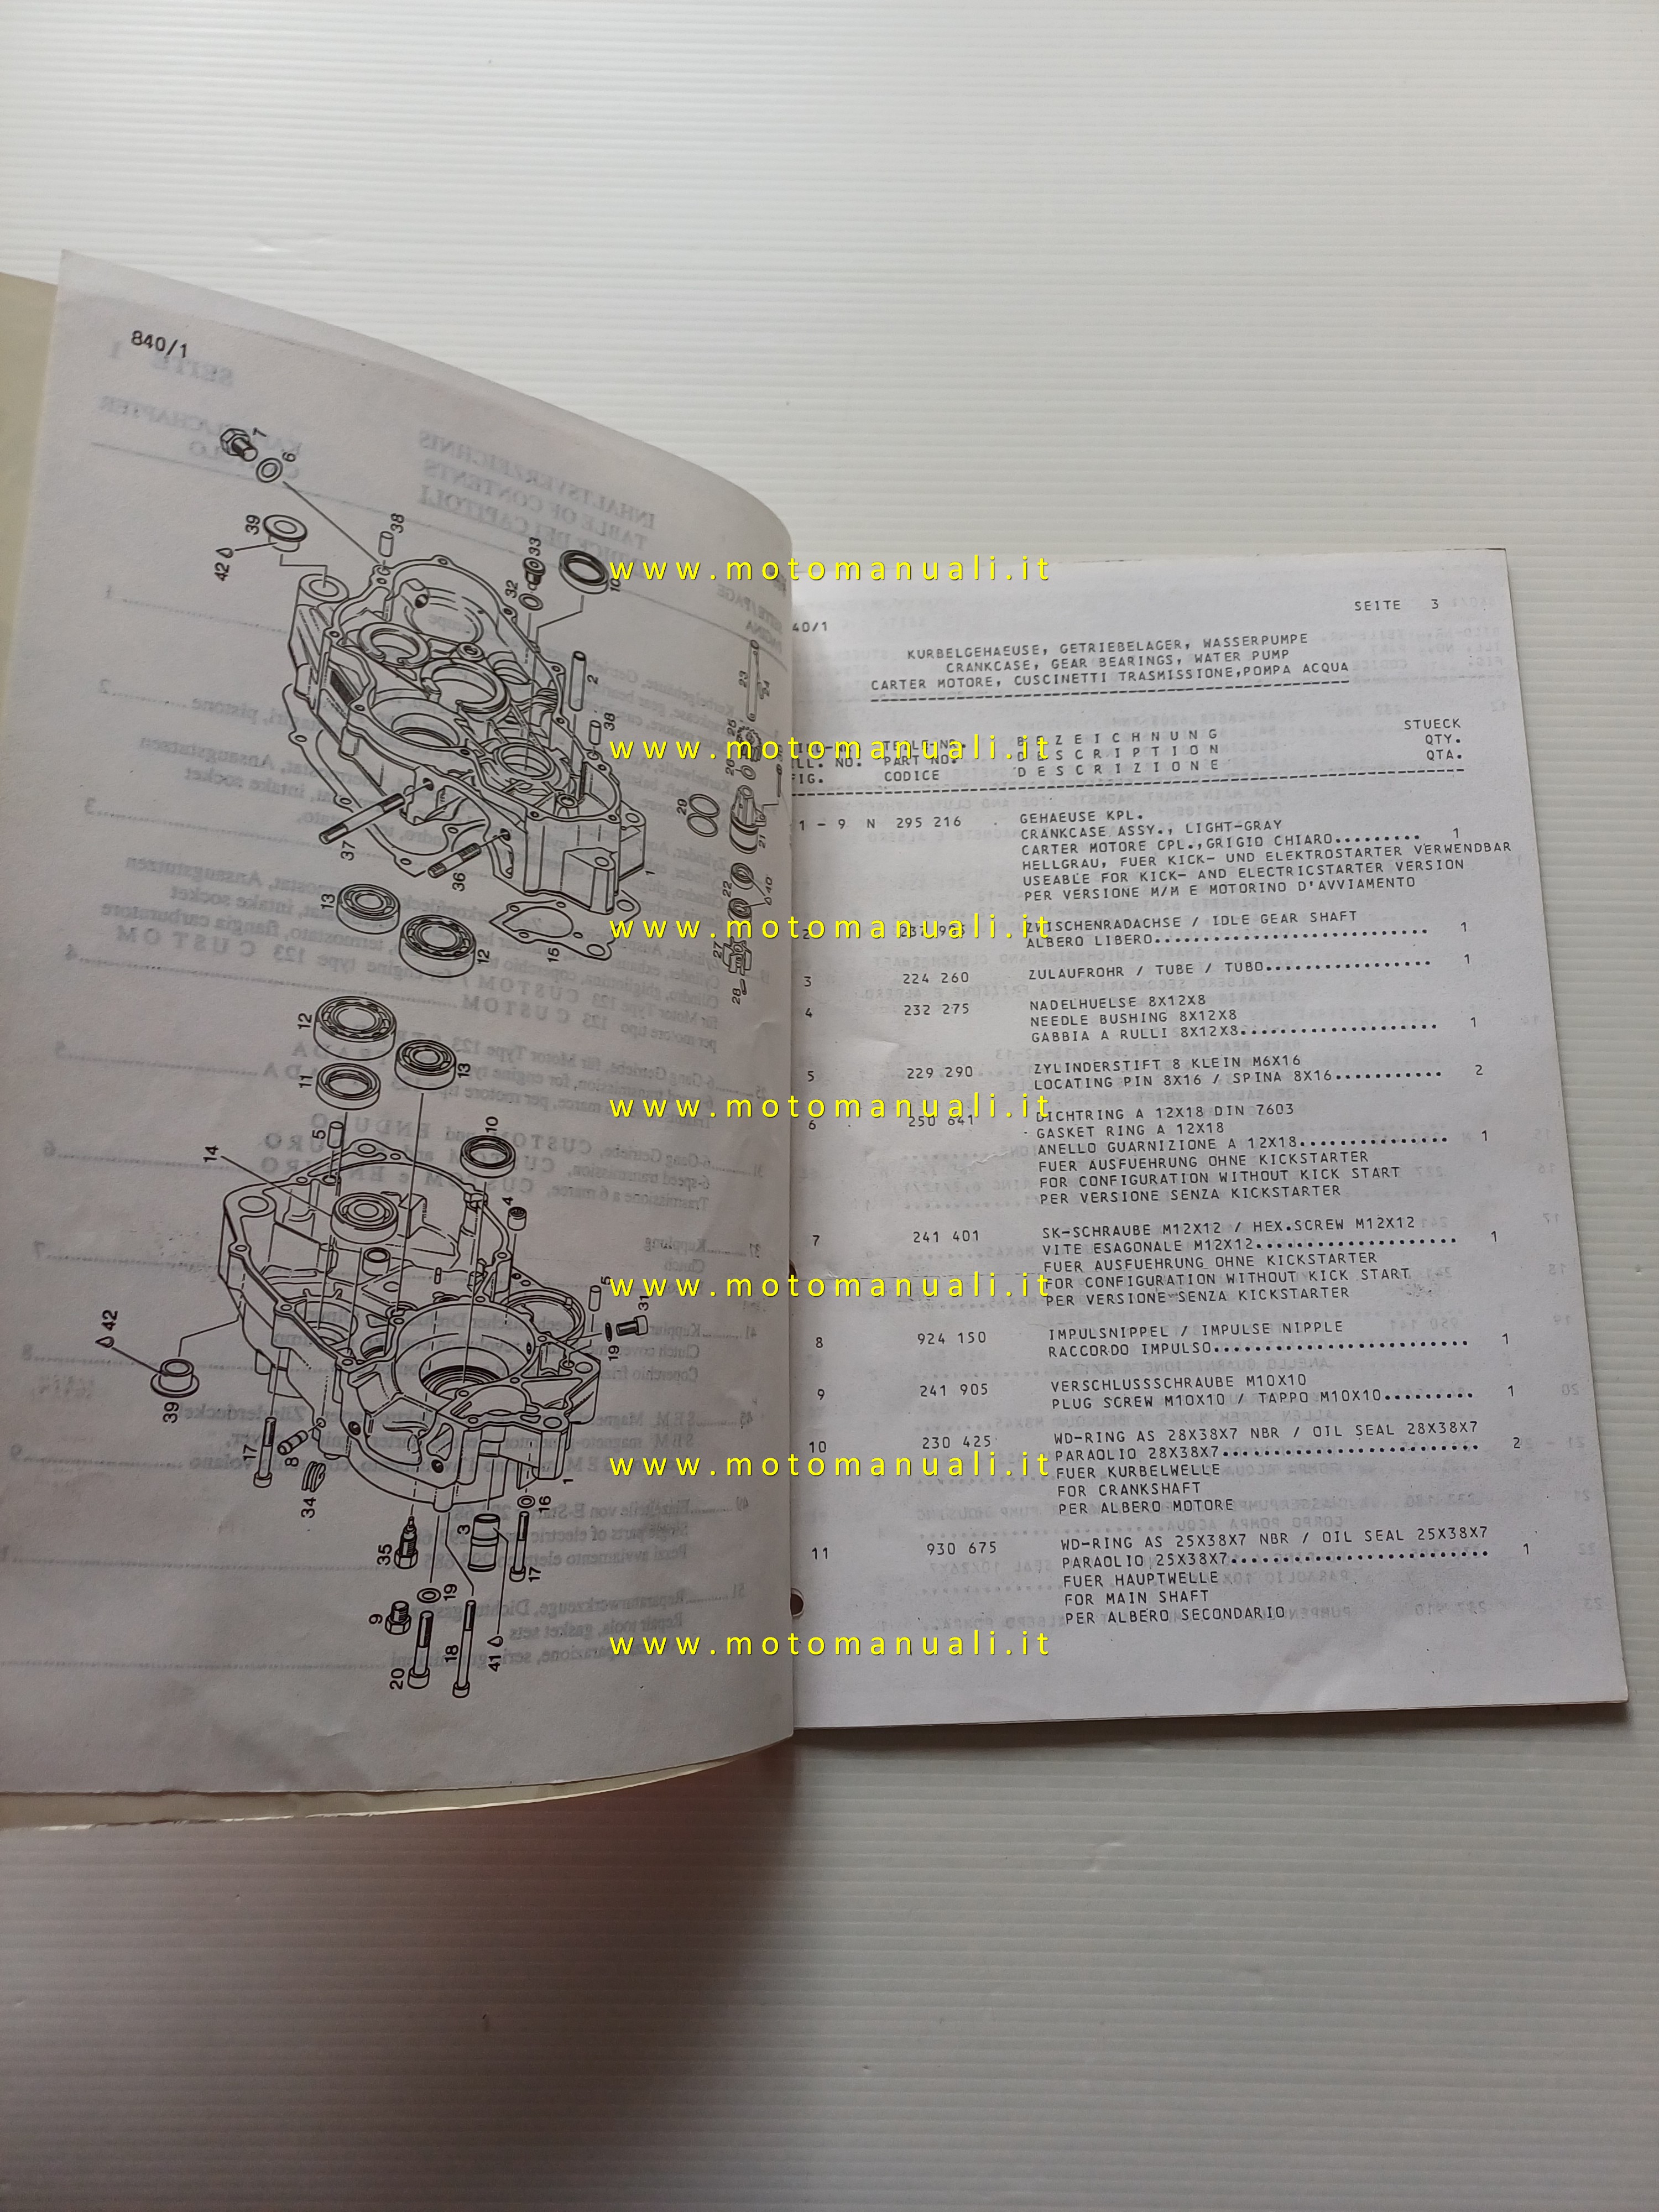 840/1
7
6
39
42
38
33
32
10
2
38
23
24
25
26
29
21
37
36
1
22
40
27
28
13
12
15
12
13
11
5
14
10
4
5
31
19
42
39
17
8
34
1
16
3
17
35
19
9
18
20
41
40/1
SEITE 3
KURBELGEHAEUSE, GETRIEBELAGER, WASSERPUMPE
CRANKCASE, GEAR BEARINGS, WATER PUMP
CARTER MOTORE, CUSCINETTI TRASMISSIONE,POMPA ACQUA
B E Z E I C H N U N G STUECK
LL. NO. PART NO. D E S C R I P T I O N QTY.
FIG. CODICE D E S C R I Z I O N E QTA.
1 - 9 N 295 216 . GEHAEUSE KPL.
CRANKCASE ASSY., LIGHT-GRAY
CARTER MOTORE CPL.,GRIGIO CHIARO......... 1
HELLGRAU, FUER KICK- UND ELEKTROSTARTER VERWENDBAR
USEABLE FOR KICK- AND ELECTRICSTARTER VERSION
PER VERSIONE M/M E MOTORINO D'AVVIAMENTO
2 ZWISCHENRADACHSE / IDLE GEAR SHAFT
ALBERO LIBERO............................. 1
3 224 260 ZULAUFROHR / TUBE / TUBO................. 1
4 232 275 NADELHUELSE 8X12X8
NEEDLE BUSHING 8X12X8
GABBIA A RULLI 8X12X8..................... 1
5 229 290 ZYLINDERSTIFT 8 KLEIN M6X16
LOCATING PIN 8X16 / SPINA 8X16........... 2
6 250 641 DICHTRING A 12X18 DIN 7603
GASKET RING A 12X18
ANELLO GUARNIZIONE A 12X18............... 1
FUER AUSFUEHRUNG OHNE KICKSTARTER
FOR CONFIGURATION WITHOUT KICK START
PER VERSIONE SENZA KICKSTARTER
7 241 401 SK-SCHRAUBE M12X12 / HEX.SCREW M12X12
VITE ESAGONALE M12X12..................... 1
FUER AUSFUEHRUNG OHNE KICKSTARTER
FOR CONFIGURATION WITHOUT KICK START
PER VERSIONE SENZA KICKSTARTER
8 924 150 IMPULSNIPPEL / IMPULSE NIPPLE
RACCORDO IMPULSO.......................... 1
9 241 905 VERSCHLUSSSCHRAUBE M10X10
PLUG SCREW M10X10 / TAPPO M10X10......... 1
10 230 425 WD-RING AS 28X38X7 NBR / OIL SEAL 28X38X7
PARAOLIO 28X38X7.......................... 2
FUER KURBELWELLE
FOR CRANKSHAFT
PER ALBERO MOTORE
11 930 675 WD-RING AS 25X38X7 NBR / OIL SEAL 25X38X7
PARAOLIO 25X38X7.......................... 1
FUER HAUPTWELLE
FOR MAIN SHAFT
PER ALBERO SECONDARIO
www.motomanuali.it
www.motomanuali.it
www.motomanuali.it
www.motomanuali.it
www.motomanuali.it
www.motomanuali.it
www.motomanuali.it